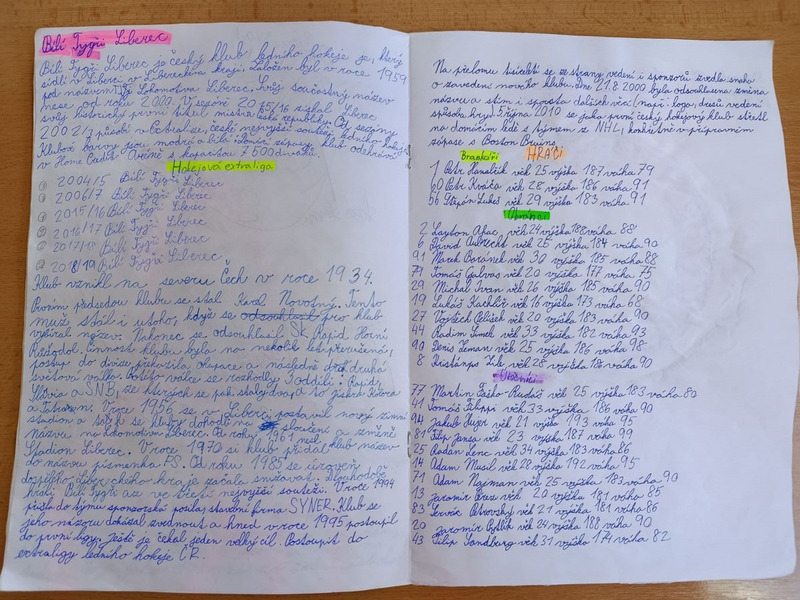 Bílí Tygři Liberec
Bílí Tygři Liberec je český klub ledního hokeje je, který
sídlí v Liberci v Libereckém kraji. Založen byl v roce 1959
pod názvem Lokomotiva Liberec. Svůj současný název
nese od roku 2000. V sezoně 2015/16 získal Liberec
svůj historicky první titul mistra české republiky. Od sezóny
2002/3 působí v extralize, české nejvyšší soutěži ledního hokeje
Klubové barvy jsou, modrá a bílá. domácí zápasy klub odehrává
v Home Credit Aréně s kapacitou 7 500 diváků.
Hokejová extraliga
2004/5 Bílí Tygři Liberec
2006/7 Bílí Tygři Liberec
2015/16 Bílí Tygři Liberec
2016/17 Bílí Tygři Liberec
2017/18 Bílí Tygři Liberec
2018/19 Bílí Tygři Liberec
Klub vznikl na severu Čech v roce 1934.
Prvním předsedou klubu se stal Karel Novotný. Tento
muž stál i u toho, když se pro klub
vybíral název. Nakonec se odsouhlasil SK Rapid Horní
Růžodol. Činnost klubu byla na několik let přerušená,
postup do divize překazila okupace a následně druhá
světová válka. Po této válce se rozhodly 3 oddíli: Rapid,
Slávia a SNB, ze kterých se pak staly dva, a to jiskra Kolora
a Tatran. V roce 1956 se v Liberci postavil nový zimní
stadion a tak se kluby dohodli na sloučení a změně
názvu na Lokomotiva Liberec. Od roku 1961 nesl
Stadion Liberec. V roce 1970 si klub přidal klub název
do názvu písmenka PS. Od roku 1985 se úroveň
dospělého libereckého hra je začala snižovat. Dlouhodobě
hráli Bílí Tygři až ve třetí nejvyšší soutěži. V roce 1994
přišla do týmu sponzorská posila, stavební firma SYNER. Klub se
jeho názoru dokázal zvednout a hned v roce 1995 postoupil
do první ligy. Ještě je čekal jeden velký cíl. Postoupit do
extraligy ledního hokeje ČR.
Na přelomu tisíciletí se ze strany vedení i sponzorů zvedla snaha
o zavedení nového klubu. Dne 21.8.2000 byla odsouhlasena změna
názvu a s tím i spousta dalších věcí (např: loga, dresů vedení
způsobu hry). 5. října 2010 se jako první český hokejový klub střetl
na domácím ledě s týmem z NHL, konkrétně v přípravném
zápase s Boston Bruins.
HRÁČI
Brankáři
1 Petr Hamalčík věk 25 výška 187 váha 79
60 Petr Kváča věk 28 výška 186 váha 91
56 Štěpán Lukeš věk 29 výška 183 váha 91
Obránci
2 Layton Ahac, věk 24 výška 188 váha 88
6 David Aubrecht věk 25 výška 184 váha 90
91 Marek Baránek věk 30 výška 185 váha 88
79 Tomáš Galvas věk 20 výška 177 váha 75
29 Michal Ivan věk 26 výška 185 váha 90
19 Lukáš Kachlíř věk 16 výška 173 váha 68
27 Vojtěch Pelíšek věk 20 výška 183 váha 90
44 Radim Šimek věk 33 výška 182 váha 93
90 Denis Zeman věk 25 výška 186 váha 98
8 Kristaps Zīle, věk 28 výška 186 váha 90
Útočníci
77 Martin Faško-Rudáš věk 25 výška 183 váha 80
41 Tomáš Filippi věk 33 výška 186 váha 90
94 Jakub Auger věk 21 výška 193 váha 95
81 Filip Jansa věk 23 výška 187 váha 99
25 Radan Lenc věk 34 výška 183 váha 86
14 Adam Musil věk 28 výška 192 váha 95
71 Adam Najman věk 25 výška 183 váha 90
13 Jaromír věk 20 výška 181 váha 85
83 Servác Petrovský věk 21 výška 181 váha 86
20 Jaromír Pytlík věk 24 výška 188 váha 90
43 Filip Sandberg věk 31 výška 174 váha 82